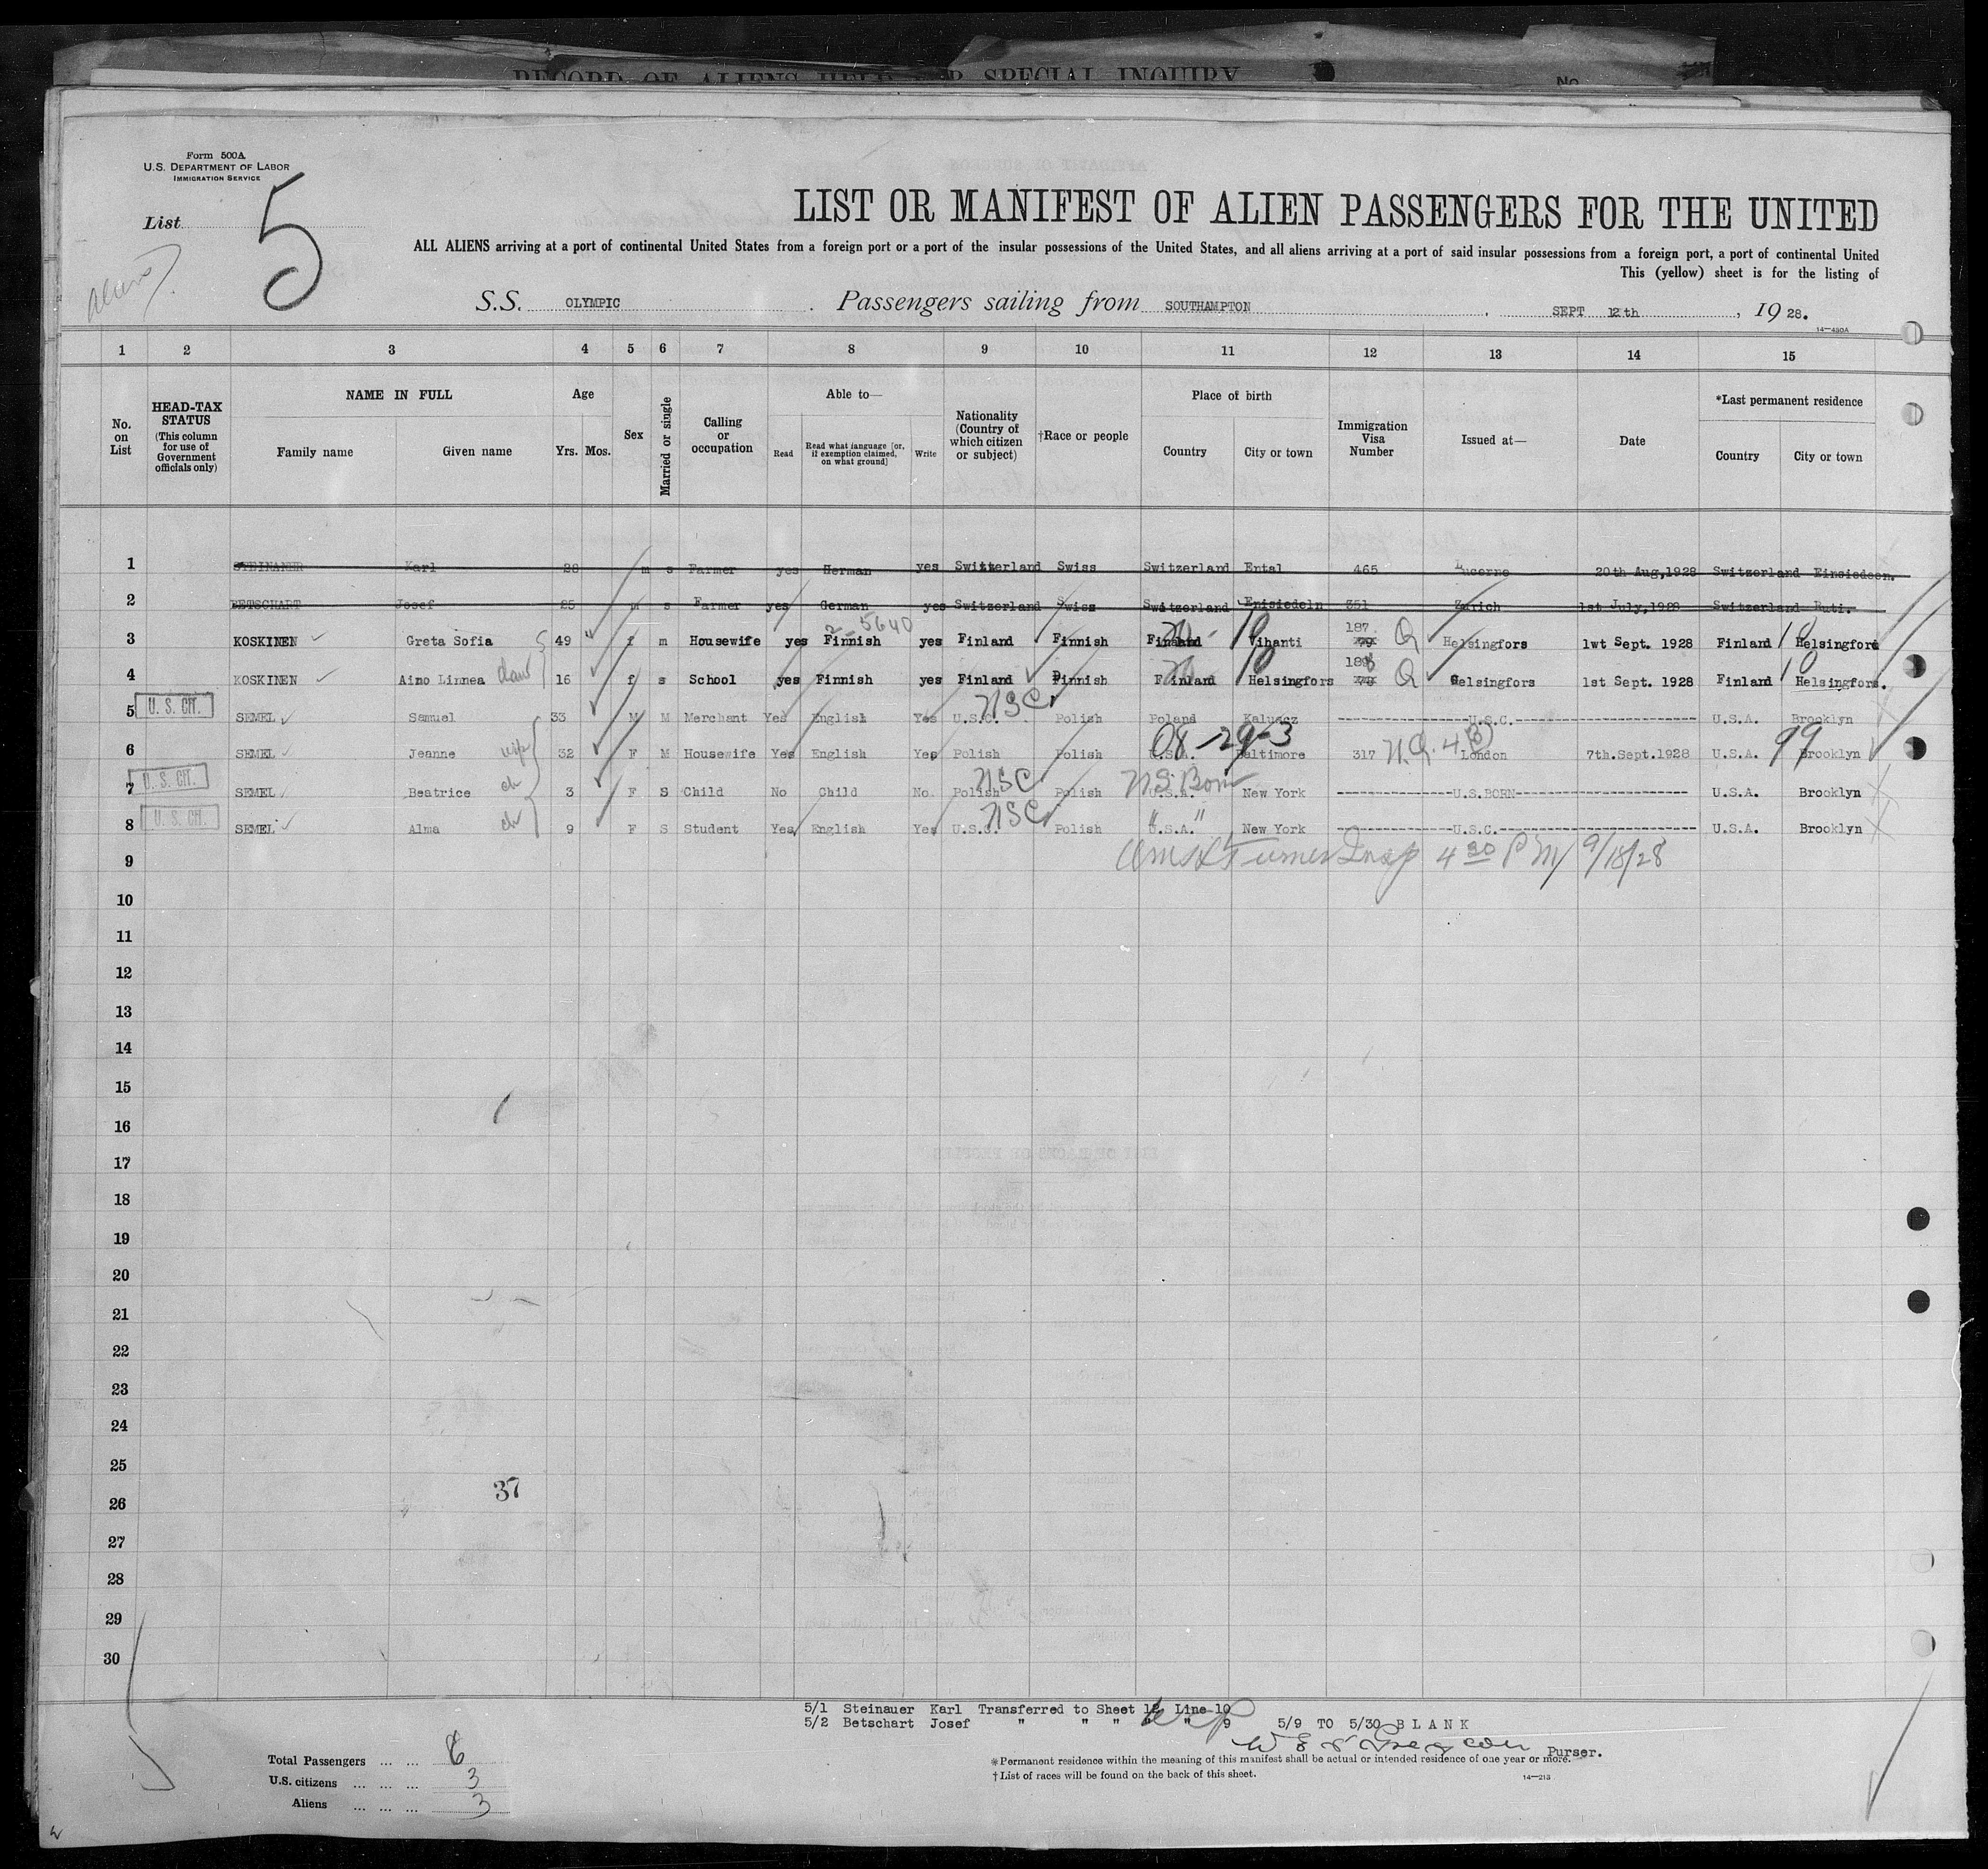 RECORD OF ALIENS HELD FOR SPECIAL INQUIRY
No
Form 500A
U.S. DEPARTMENT OF LABOR
IMMIGRATION SERVICE
List 5
aliens
LIST OR MANIFEST OF ALIEN PASSENGERS FOR THE UNITED
ALL ALIENS arriving at a port of continental United States from a foreign port or a port of the insular possessions of the United States, and all aliens arriving at a port of said insular possessions from a foreign port, a port of continental United
This (yellow) sheet is for the listing of
S.S. OLYMPIC Passengers sailing from SOUTHAMPTON, SEPT 12th, 1928.
14—430A
1 2 3 4 5 6 7 8 9 10 11 12 13 14 15
No. on List
HEAD-TAX STATUS (This column for use of Government officials only)
NAME IN FULL Family name Given name
Age Yrs. Mos.
Sex
Married or single
Calling or occupation
Able to— Read Read what language [or, if exemption claimed, on what ground] Write
Nationality (Country of which citizen or subject)
†Race or people
Place of birth Country City or town
Immigration Visa Number
Issued at—
Date
*Last permanent residence Country City or town
1 STEINAUER Karl 28 m s Farmer yes German yes Switzerland Swiss Switzerland Ental 465 Lucerne 20th Aug,1928 Switzerland Einsiedeen.
2 BETSCHART Josef 25 m s Farmer yes German yes Switzerland Swiss Switzerland Enisiedeln 351 Zurich 1st July,1928 Switzerland Ruti.
2-5640
3 KOSKINEN Greta Sofia 49 f m Housewife yes Finnish yes Finland Finnish Finland 10 Vihanti 187 79 Q Helsingfors 1wt Sept. 1928 Finland 10 Helsingford
4 KOSKINEN Aino Linnea dau 16 f s School yes Finnish yes Finland Finnish Finland 10 Helsingfors 188 79 Q Gelsingfors 1st Sept. 1928 Finland 10 Helsingfors.
5 U. S. CIT. SEMEL Samuel 33 M M Merchant Yes English Yes U.S.C. USC Polish Poland Kalusz ---U.S.C.--- U.S.A. Brooklyn
6 SEMEL Jeanne wife 32 F M Housewife Yes English Yes Polish Polish U.S.A. 08-29-3 Baltimore 317 N.Q. 4(B) London 7th.Sept.1928 U.S.A. 99 Brooklyn
7 U. S. CIT. SEMEL Beatrice ch 3 F S Child No Child No Polish USC Polish U.S.A. US Born New York ---U.S.BORN--- U.S.A. Brooklyn
8 U. S. CIT. SEMEL Alma ch 9 F S Student Yes English Yes U.S.C. USC Polish U.S.A. " " New York ---U.S.C.--- U.S.A. Brooklyn
9 Turner Insp 4 30 PM 9/18/28
10
11
12
13
14
15
16
17
18
19
20
21
22
23
24
25
37
26
27
28
29
30
5/1 Steinauer Karl Transferred to Sheet 12 Line 10
5/2 Betschart Josef " " " " 9 5/9 TO 5/30 B L A N K
Purser.
Total Passengers ... ... 6
U.S. citizens ... ... ... 3
Aliens ... ... ... 3
*Permanent residence within the meaning of this manifest shall be actual or intended residence of one year or more.
†List of races will be found on the back of this sheet.
14—213